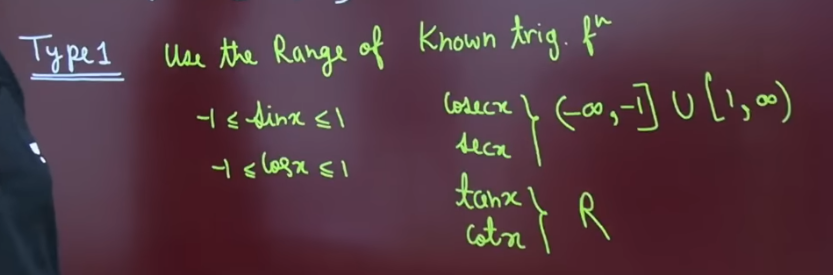 Type 1 Use the Range of Known trig. fⁿ
-1 ≤ sinx ≤ 1
-1 ≤ cosx ≤ 1
cosecx
secx } (-∞, -1] ∪ [1, ∞)
tanx
cotx } R